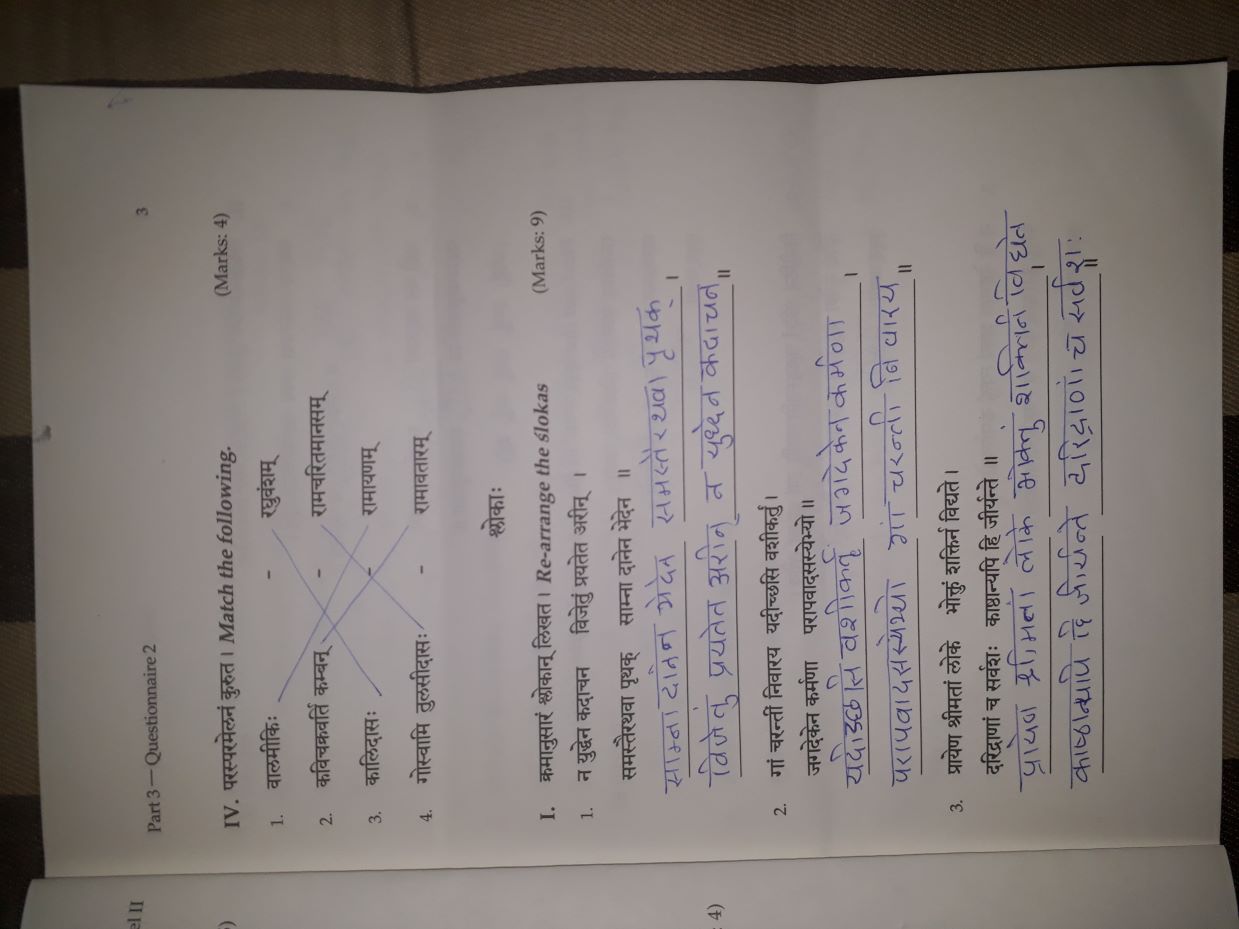 el II
Part 3 — Questionnaire 2 3
)
IV. परस्परमेलनं कुरुत। Match the following. (Marks: 4)
1. वालमीकिः - रघुवंशम्
2. कविचक्रवर्ति कम्बन् - रामचरितमानसम्
3. कालिदासः - रामायणम्
4. गोस्वामि तुलसीदासः - रामावतारम्
श्लोकाः
I. क्रमानुसारं श्लोकान् लिखत। Re-arrange the ślokas (Marks: 9)
1. न युद्धेन कदाचन विजेतुं प्रयतेत अरीन् ।
समस्तैरथवा पृथक् साम्ना दानेन भेदेन ॥
साम्ना दानेन भेदेन समस्तैरथवा पृथक् ।
: 4)
विजेतुं प्रयतेत अरीन् न युध्देन कदाचन ॥
2. गां चरन्तीं निवारय यदीच्छसि वशीकर्तुं।
जगदेकेन कर्मणा परापवादसस्येभ्यो॥
यदीच्छसि वशीकर्तुं जगदेकेन कर्मणा ।
परापवादसस्येभ्यो गां चरन्ती निवारय ॥
3. प्रायेण श्रीमतां लोके भोक्तुं शक्तिर्न विद्यते।
दरिद्राणां च सर्वशः काष्ठान्यपि हि जीर्यन्ते ॥
प्रायेण श्रीमतां लोके भोक्तुं शक्तिर्न विद्यते ।
काष्ठान्यपि हि जीर्यन्ते दरिद्राणां च सर्वशः ॥